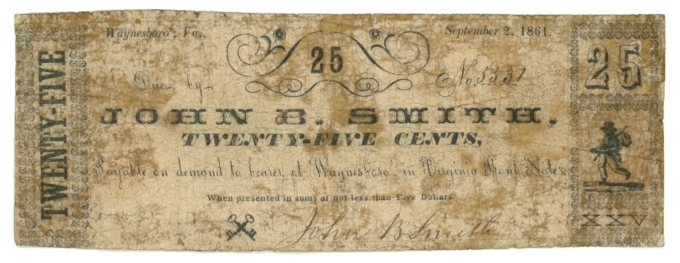 TWENTY-FIVE
Waynesboro', Va., September 2, 1861.
25
Due by No. 5331
JOHN B. SMITH,
TWENTY-FIVE CENTS,
Payable on demand to bearer, at Waynesboro', in Virginia Bank Notes
When presented in sums of not less than Five Dollars
John B Smith
25
XXV